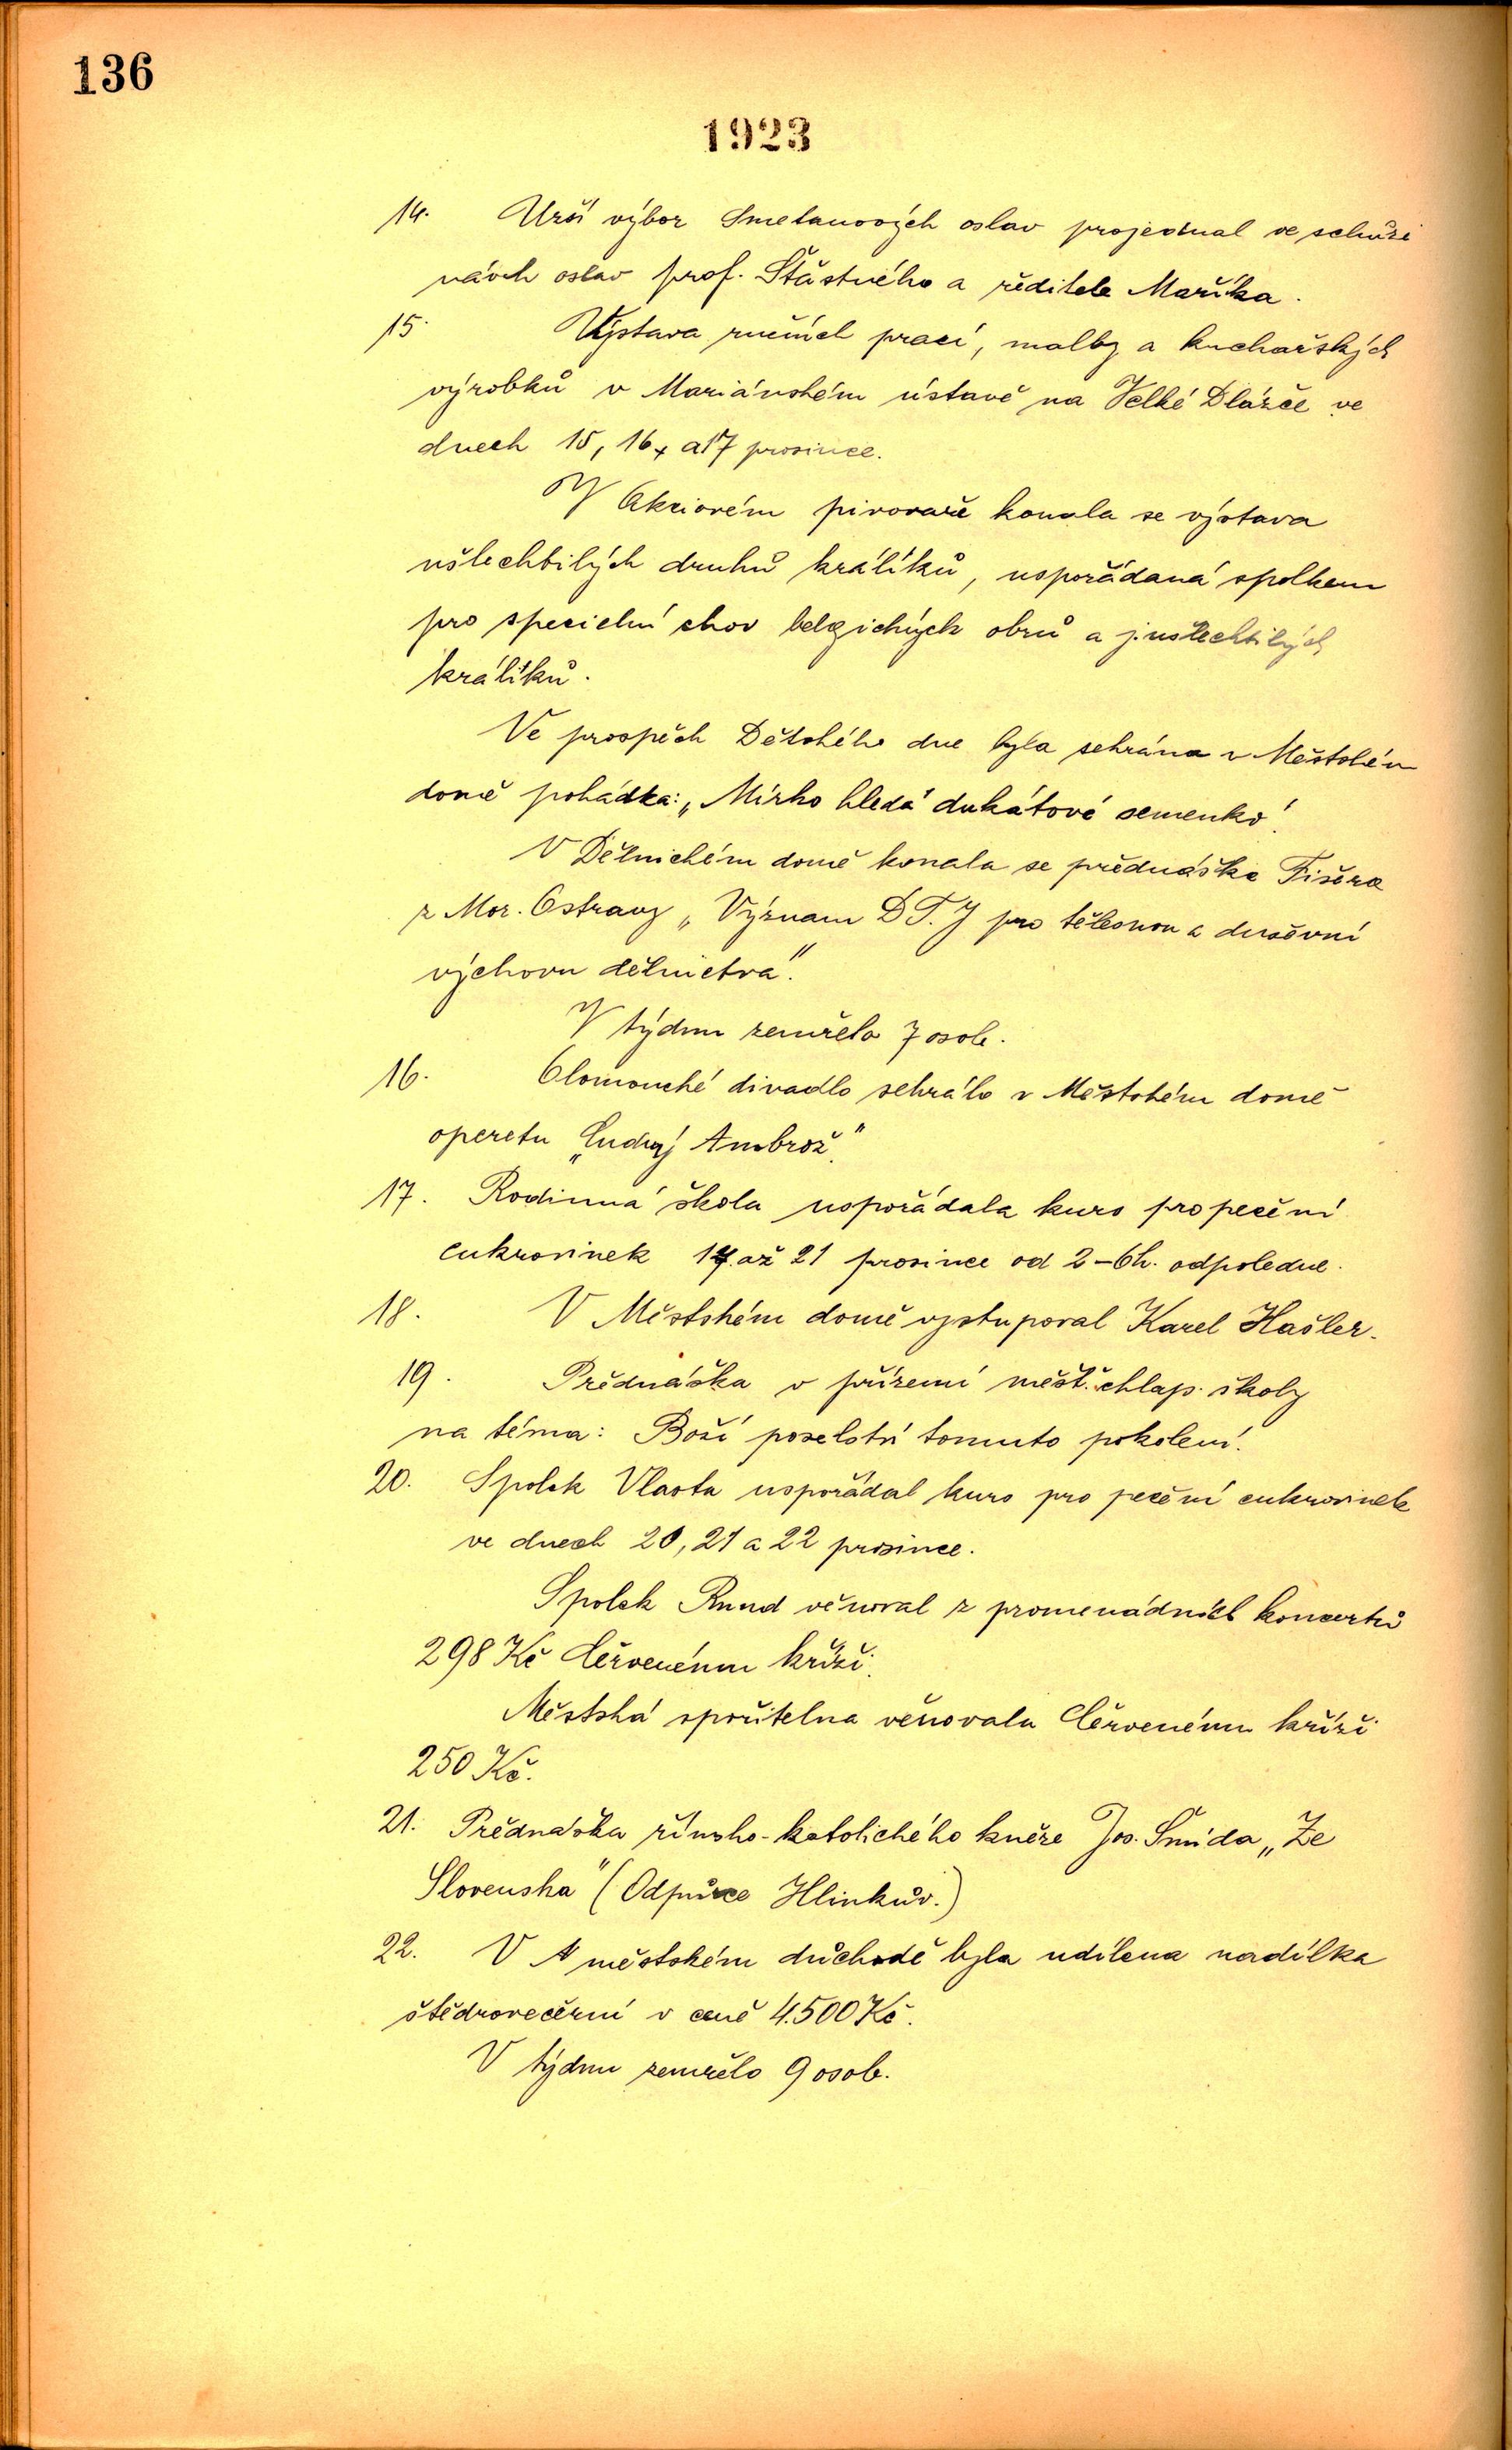 136
1923
14. Užší výbor Smetanových oslav projednal ve schůzi
návrh oslav prof. Šťastného a ředitele Maříka.
15. Výstava ručních prací, malby a kuchařských
výrobků v Mariánském ústavě na Velké Dlážce ve
dnech 15, 16, a 17 prosince.
V Akciovém pivovaře konala se výstava
ušlechtilých druhů králíků, uspořádaná spolkem
pro specielní chov belgických obrů a j. ušlechtilých
králíků.
Ve prospěch Dětského dne byla sehrána v Městském
domě pohádka: „Mirko hledá dukátové semenko“.
V Dělnickém domě konala se přednáška Fišera
z Mor. Ostravy „Význam D.T.J pro tělesnou a duševní
výchovu dělnictva“.
V týdnu zemřelo 7 osob.
16. Olomoucké divadlo sehrálo v Městském domě
operetu „Ambrož“.
17. Rodinná škola uspořádala kurs pro pečení
cukrovinek 17. až 21 prosince od 2-6h. odpoledne.
18. V Městském domě vystupoval Karel Hašler.
19. Přednáška v přízemí měšť. chlap. školy
na téma: Boží poselství tomuto pokolení.
20. Spolek Vlasta uspořádal kurs pro pečení cukrovinek
ve dnech 20, 21 a 22 prosince.
Spolek Rund věnoval z promenádních koncertů
298 Kč Červenému kříži.
Městská spořitelna věnovala Červenému kříži
250 Kč.
21. Přednáška římsko-katolického kněze Jos. Šmída „Ze
Slovenska“ (Odpůrce Hlinkův.)
22. V městském důchodě byla udílena nadílka
štědrovečerní v ceně 4.500 Kč.
V týdnu zemřelo 9 osob.